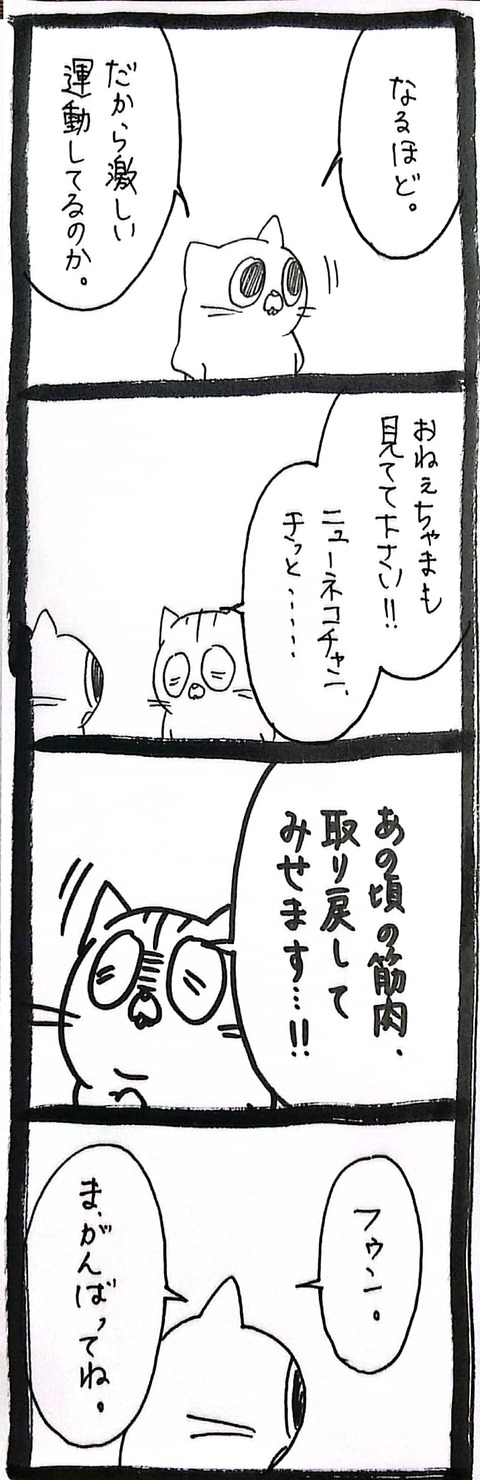 なるほど。
だから激しい
運動してるのか。
おねぇちゃまも
見てて下さい!!
ニューネコチャン、
きっと……
あの頃の筋肉、
取り戻して
みせます…!!
フゥン。
ま、がんばってね。